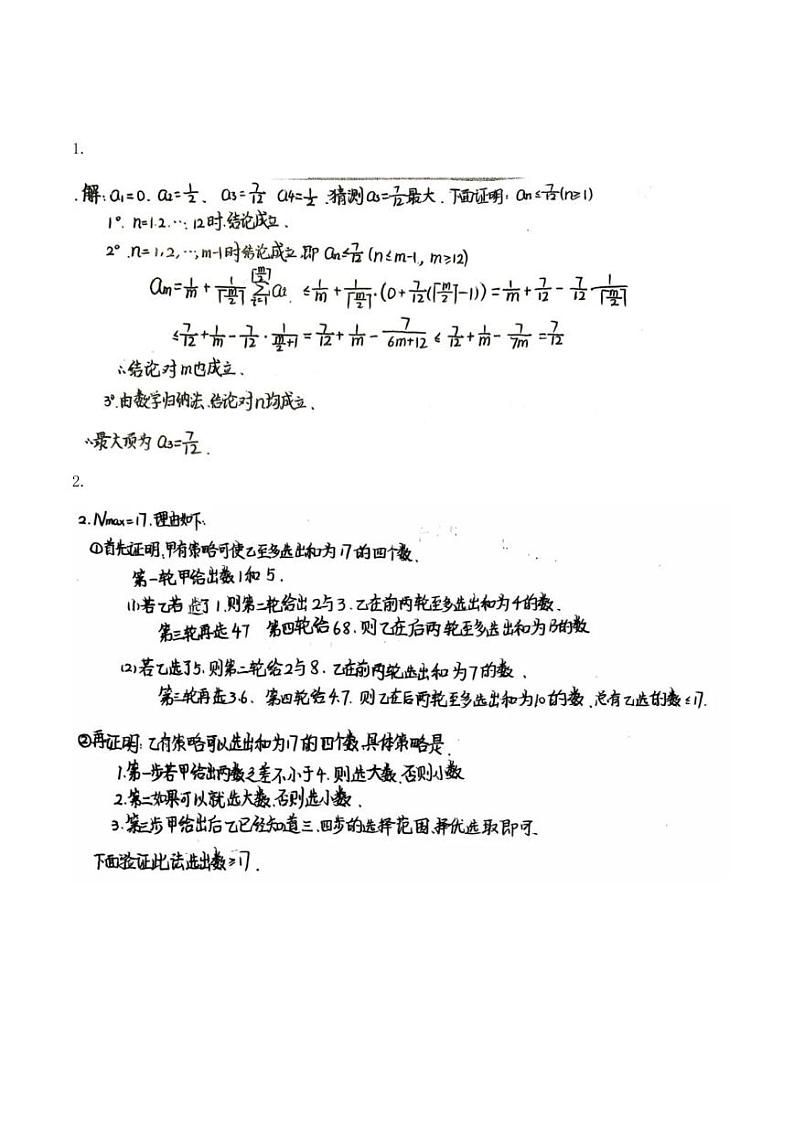 1.
解: a₁=0. a₂=1/2、 a₃=7/12 a₄=1/2. 猜测a₃=7/12最大. 下面证明: aₙ≤7/12(n≥1)
1°. n=1.2.…, 12时.结论成立.
2°. n=1,2,…,m-1时结论成立.即 aₙ≤7/12 (n≤m-1, m≥12)
aₘ=1/m + 1/⌈m/2⌉ ∑_{i=1}^{⌈m/2⌉} aᵢ ≤ 1/m + 1/⌈m/2⌉·(0+7/12(⌈m/2⌉-1)) = 1/m + 7/12 - 7/12·1/⌈m/2⌉
≤ 7/12 + 1/m - 7/12·1/(m/2+1) = 7/12 + 1/m - 7/(6m+12) ≤ 7/12 + 1/m - 7/7m = 7/12
∴结论对m也成立.
3°.由数学归纳法.结论对n均成立.
∴最大项为 a₃=7/12.
2.
2.Nmax=17.理由如下:
①首先证明,甲有策略可使乙至多选出和为17的四个数.
第一轮甲给出数1和5.
(1)若乙若选了1.则第二轮给出2与3.乙在前两轮至多选出和为4的数.
第三轮再选47 第四轮给68.则乙在后两轮至多选出和为13的数
(2)若乙选了5.则第二轮给2与8.乙在前两轮选出和为7的数.
第三轮再选3.6. 第四轮给4.7. 则乙在后两轮至多选出和为10的数.总有乙选的数≤17.
②再证明:乙有策略可以选出和为17的四个数.具体策略是.
1.第一步若甲给出两数之差不小于4.则选大数.否则小数
2.第二如果可以就选大数.否则选小数.
3.第三步甲给出后乙已经知道三.四步的选择范围.择优选取即可.
下面验证此法选出数≥17.